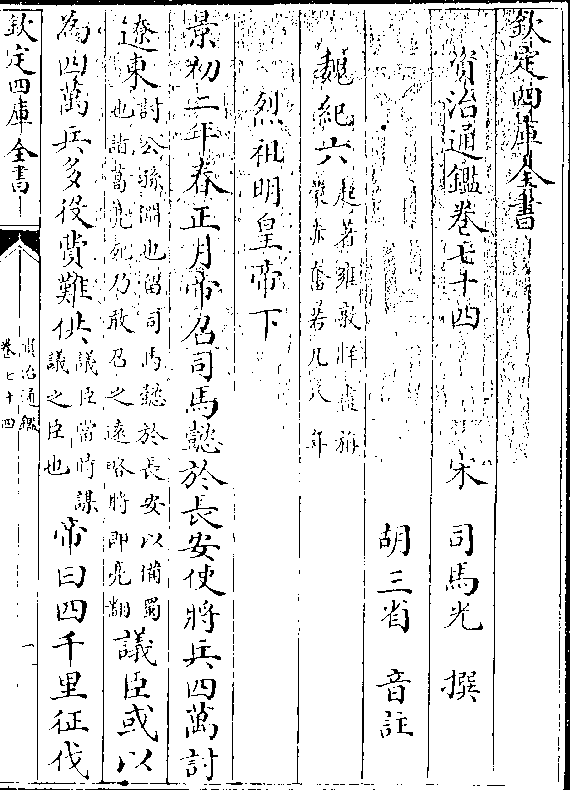 欽定四庫全書
資治通鑑卷七十四 宋 司馬光 撰
胡三省 音註
魏紀六 起著雍敦牂盡旃
蒙赤奮若凡八年
烈祖明皇帝下
景初二年春正月帝召司馬懿於長安使將兵四萬討
遼東 討公孫淵也留司馬懿於長安以備蜀
也諸葛亮死乃敢召之遠略將即亮翻 議臣或以
為四萬兵多役費難供 議臣當時謀
議之臣也 帝曰四千里征伐
欽定四庫全書
資治通鑑
卷七十四
一